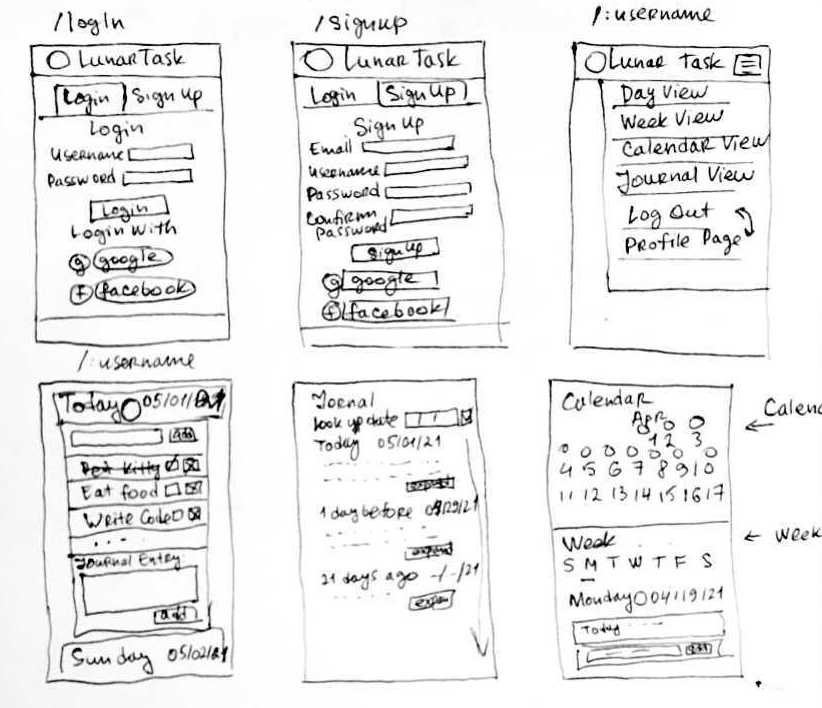 /login
LunarTask
Login Sign Up
Login
Username
Password
Login
Login With
g google
f facebook
/signup
LunarTask
Login Sign Up
Sign Up
Email
Username
Password
Confirm
Password
Sign Up
g google
f facebook
/:username
Lunar Task
Day View
Week View
Calendar View
Journal View
Log Out
Profile Page
/:username
Today 05/01/21
add
Pet Kitty
Eat food
Write Code
Journal Entry
add
Sunday 05/02/21
Jornal
look up date / /
Today 05/01/21
expand
1 day before 04/29/21
expand
21 days ago -/-/21
expan
Calendar
Apr
1 2 3
4 5 6 7 8 9 10
11 12 13 14 15 16 17
Week
S M T W T F S
Monday 04/19/21
Today
add
← Calend
← Week